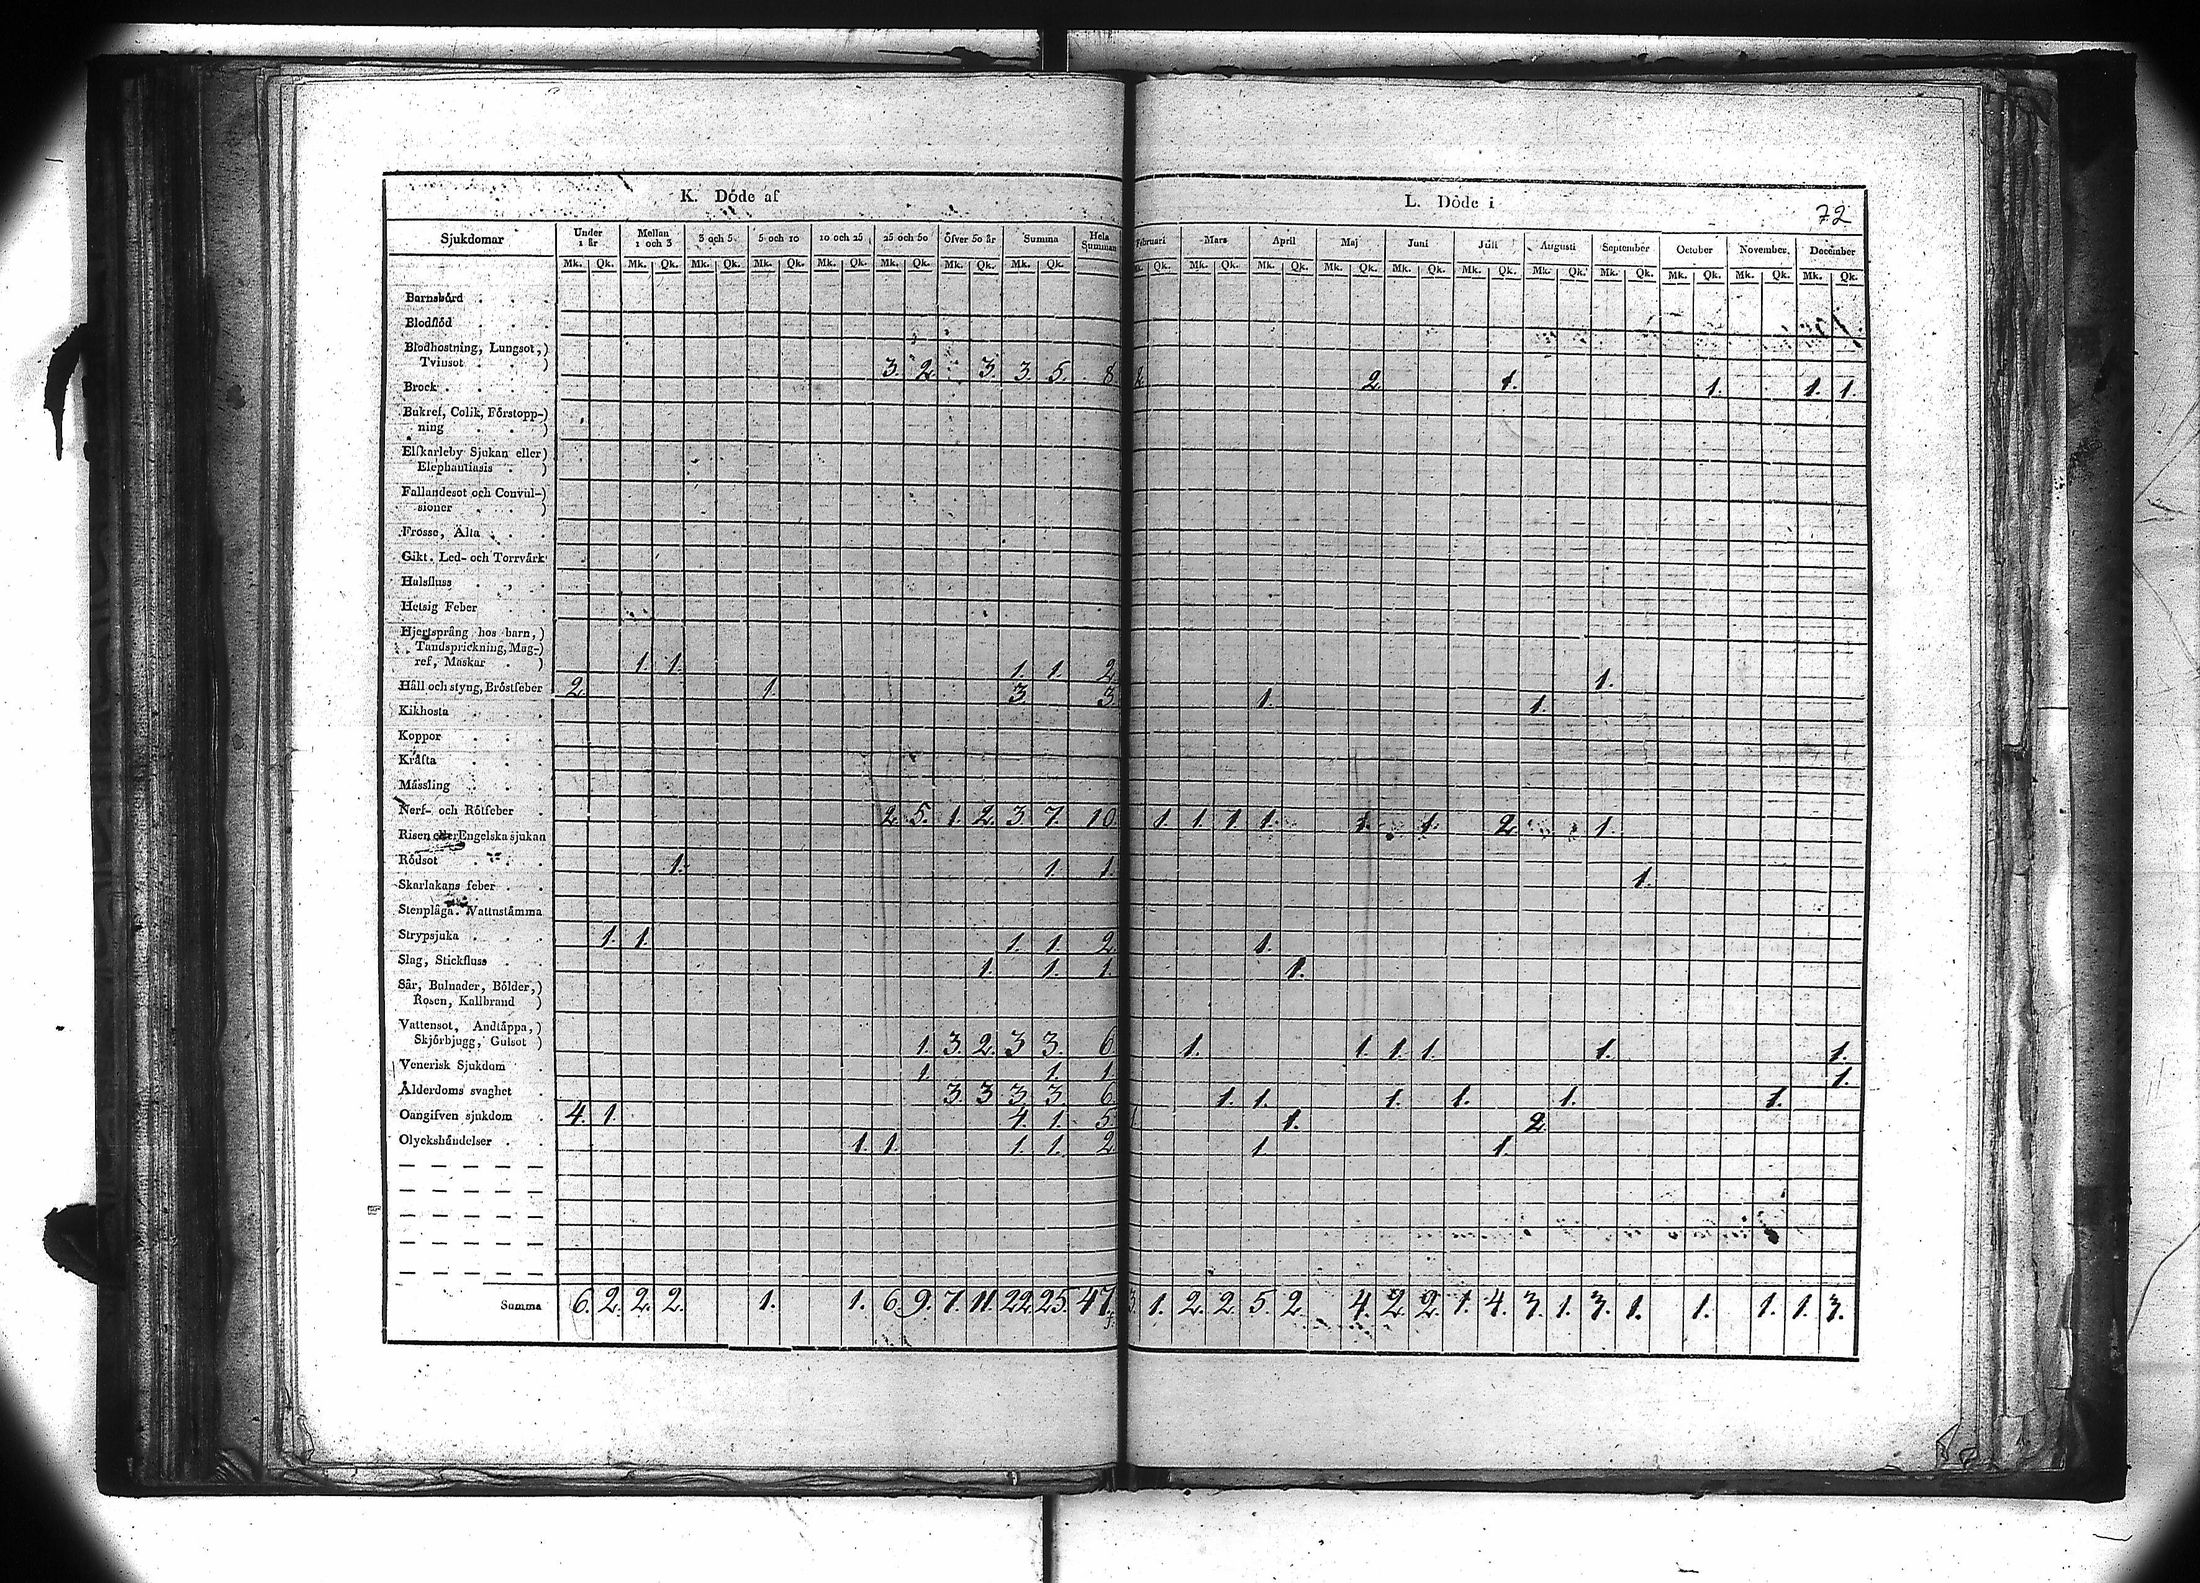 K. Döde af
L. Döde i
72
Sjukdomar Under 1 år Mellan 1 och 3 3 och 5 5 och 10 10 och 25 25 och 50 Öfver 50 år Summa Hela Summan
Februari Mars April Maj Juni Juli Augusti September October November. December
Mk. Qk. Mk. Qk. Mk. Qk. Mk. Qk. Mk. Qk. Mk. Qk. Mk. Qk. Mk. Qk.
Qk. Mk. Qk. Mk. Qk. Mk. Qk. Mk. Qk. Mk. Qk. Mk. Qk. Mk. Qk. Mk. Qk. Mk. Qk. Mk. Qk.
Barnsbörd . . .
Blodflöd . . .
Blodhostning, Lungsot,)
Tvinsot . . ) 3. 2. 3. 3. 5. 8 2 2. 1. 1. 1. 1.
Brock . . . .
Bukref, Colik, Förstopp-)
ning . . )
Elfkarleby Sjukan eller)
Elephantiasis . )
Fallandesot och Convul-)
sioner . . )
Frosse, Älta . . .
Gikt. Led- och Torrvärk
Halsfluss . . .
Hetsig Feber . .
Hjertsprång hos barn,)
Tandsprickning, Mag-)
ref, Maskar . ) 1. 1. 1. 1. 2 1.
Håll och styng, Bröstfeber 2 1. 3. 3 1. 1.
Kikhosta . . .
Koppor . . .
Kräfta . . .
Mässling . . .
Nerf- och Rötfeber . 2. 5. 1. 2. 3 7. 10 1 1. 1. 1. 1. 1. 2. 1.
Risen eller Engelska sjukan
Rödsot . . . 1. 1. 1. 1.
Skarlakans feber . .
Stenplåga. Vattnstämma
Strypsjuka . . . 1. 1. 1. 1. 2. 1.
Slag, Stickfluss . . 1. 1. 1. 1.
Sår, Bulnader, Bölder,)
Rosen, Kallbrand )
Vattensot, Andtäppa,)
Skjörbjugg, Gulsot ) 1. 3. 2. 3 3. 6 1. 1. 1. 1. 1. 1.
Venerisk Sjukdom . 1. 1. 1 1.
Ålderdoms svaghet . 3. 3 3. 3. 6 1. 1. 1. 1. 1. 1.
Oangifven sjukdom . 4. 1. 4. 1. 5 1 1. 2
Olyckshändelser . . 1. 1. 1. 1. 2 1 1.
Summa 6. 2. 2. 2. 1. 1. 6. 9. 7. 11. 22. 25. 47. 3. 1. 2. 2. 5. 2. 4. 2. 2. 1. 4. 3. 1. 3. 1. 1. 1. 1. 3.